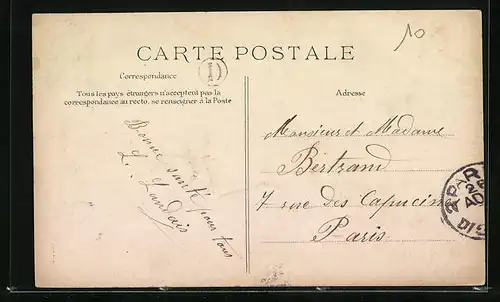 10
CARTE POSTALE
D
Correspondance
Tous les pays étrangers n'acceptent pas la
correspondance au recto, se renseigner à la Poste
Bonne santé pour tous
L. Landais
Adresse
Monsieur et Madame
Bertrand
7 rue des Capucine
Paris
PAR